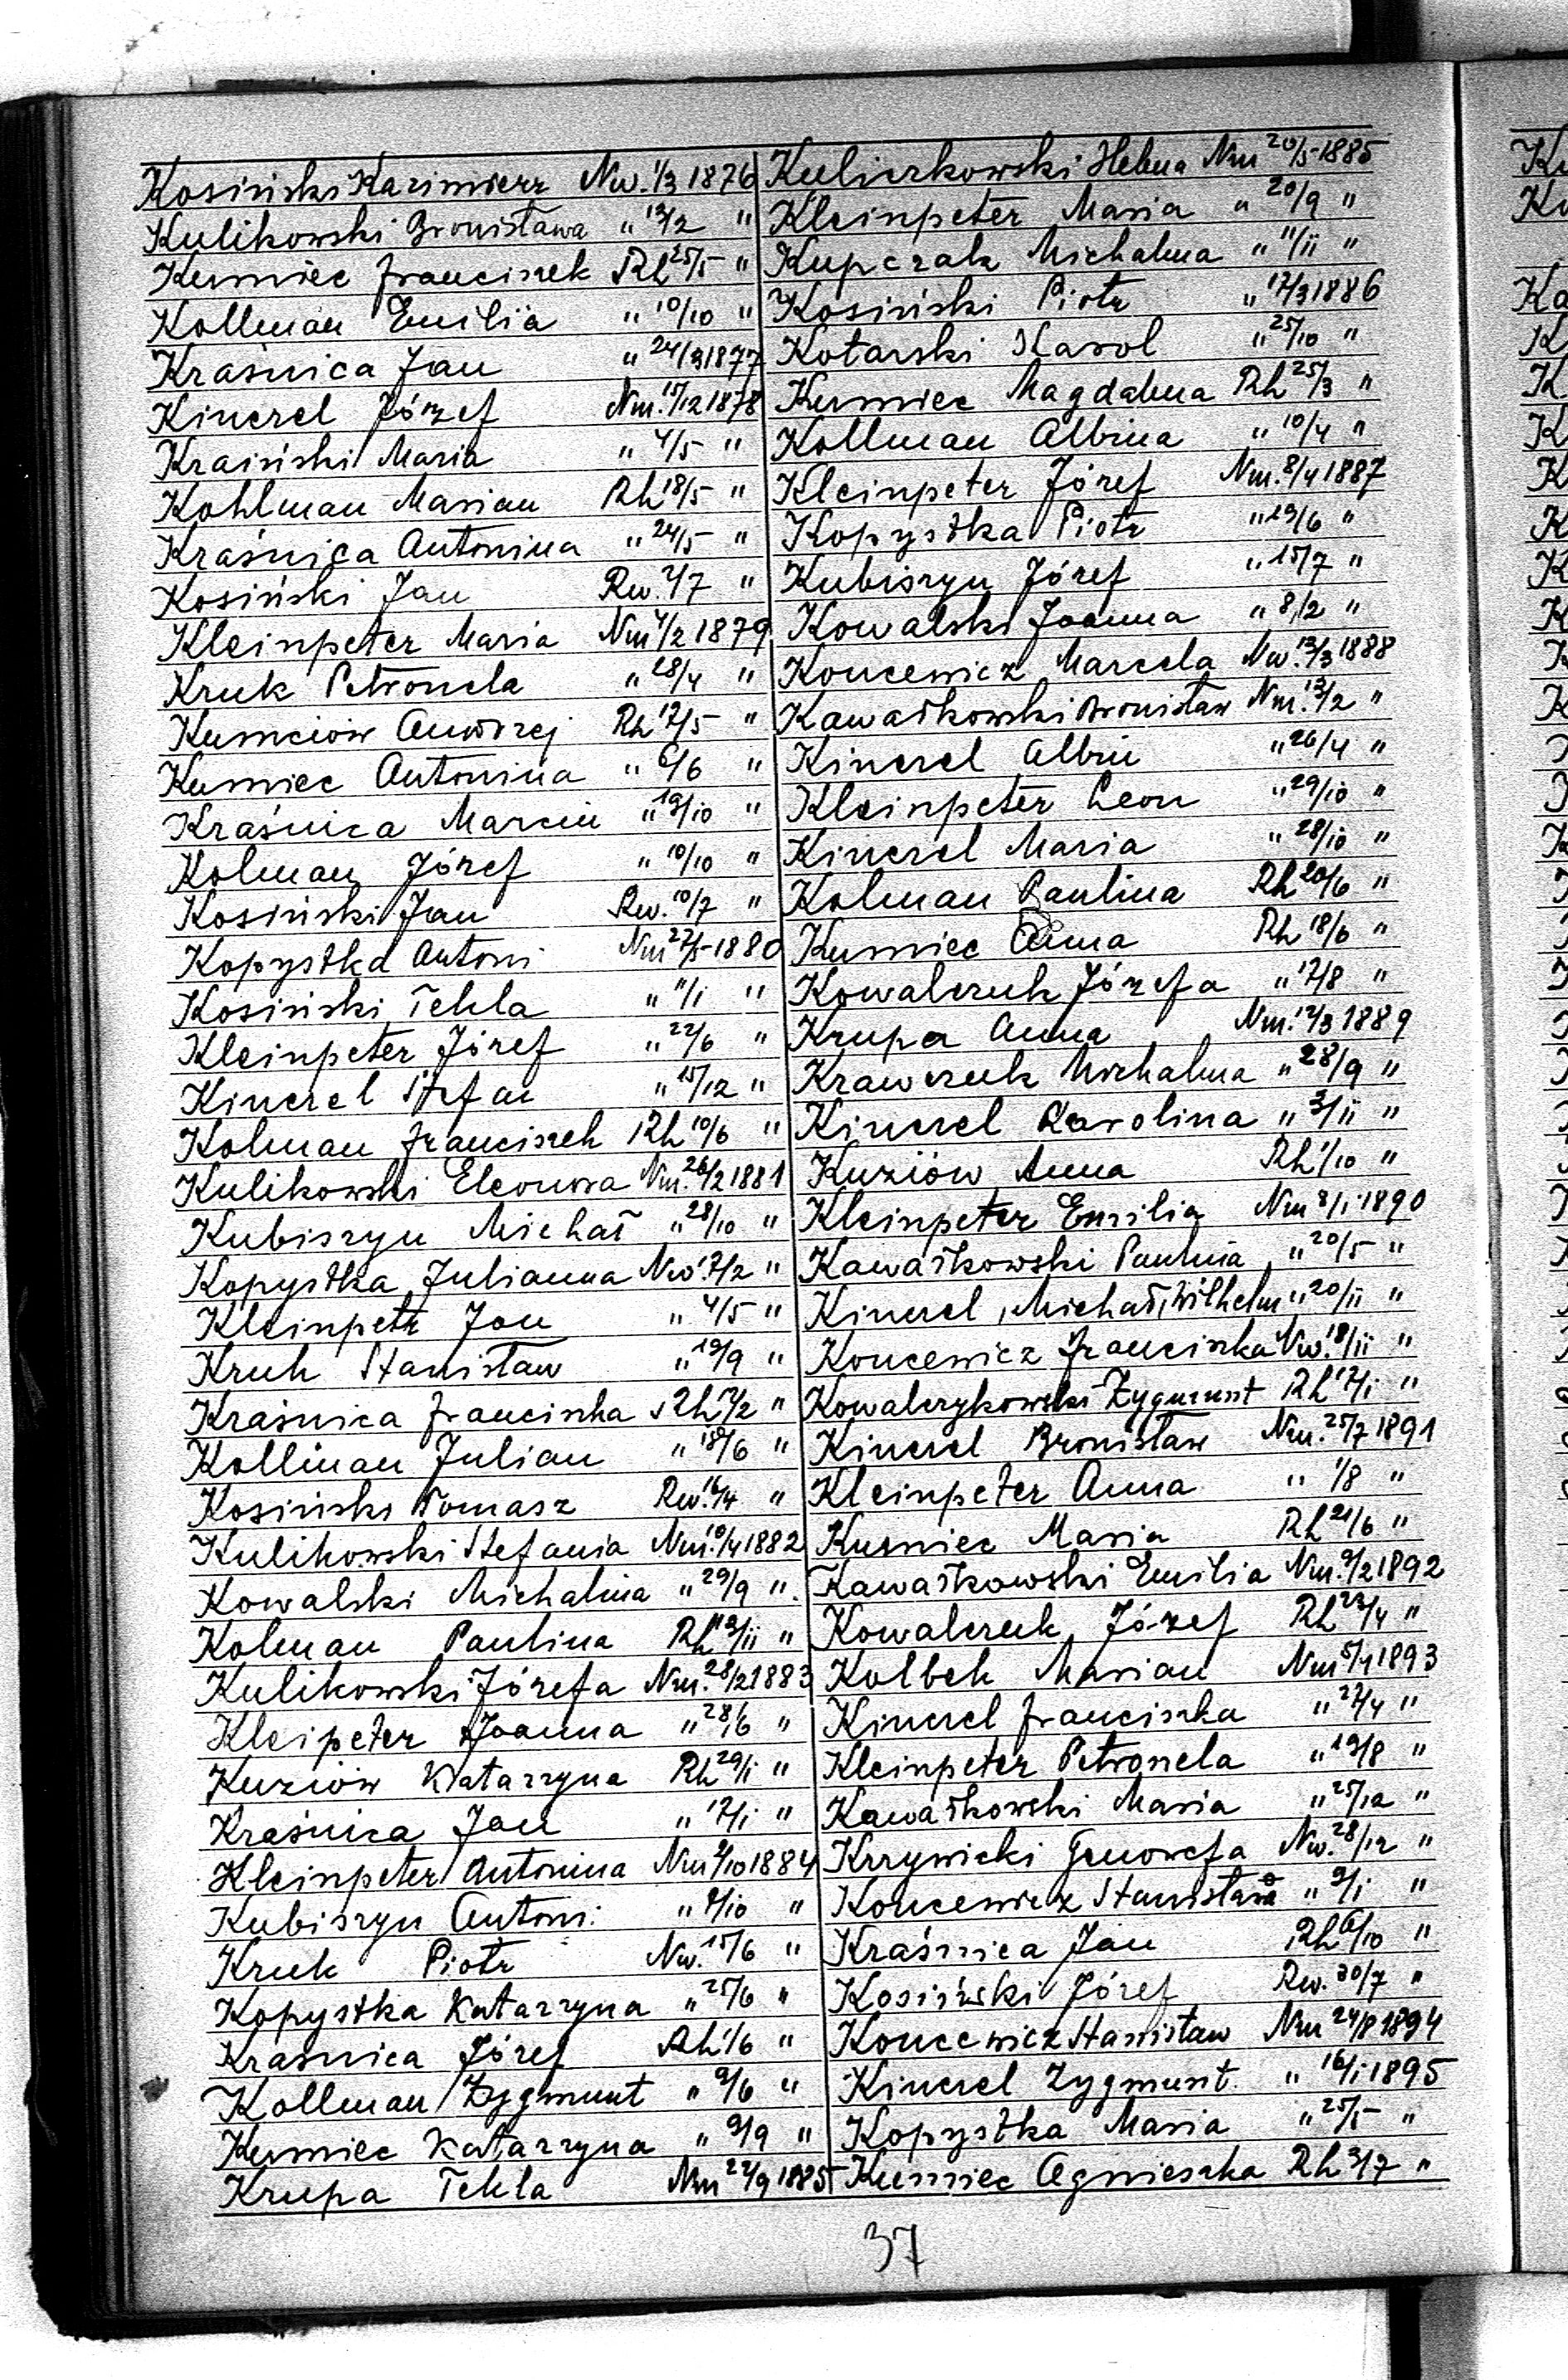 Kosiński Kazimierz Nw. 1/3 1876
Kulikowski Bronisława " 13/2 "
Kumiec Franciszek Rh 25/5 "
Kollman Emilia " 10/10 "
Kraśnica Jan " 24/3 1877
Kinerel Józef Nm. 15/12 1878
Kraiński Maria " 4/5 "
Kohlman Marian Rh 18/5 "
Kraśnica Antonina " 24/5 "
Kosiński Jan Rw. 2/7 "
Kleinpeter Maria Nm 4/2 1879
Kruk Petronela " 28/4 "
Kumciów Andrzej Rh 17/5 "
Kumiec Antonina " 6/6 "
Kraśnica Marcin " 19/10 "
Kolman Józef " 10/10 "
Kosiński Jan Rw. 10/7 "
Kopystka Antoni Nm 27/5 1880
Kosiński Tekla " 11/i "
Kleinpeter Józef " 22/6 "
Kinerel Stefan " 15/12 "
Kolman Franciszek Rh 10/6 "
Kulikowski Eleonora Nm. 26/2 1881
Kubiszyn Michał " 28/10 "
Kopystka Julianna Nw. 17/2 "
Kleinpetr Jan " 4/5 "
Kruk Stanisław " 19/9 "
Kraśnica Franciszka Rh 17/2 "
Kollman Julian " 18/6 "
Kosiński Tomasz Rw. 16/4 "
Kulikowski Stefania Nm. 10/4 1882
Kowalski Michalina " 29/9 ".
Kolman Paulina Rh 13/ii "
Kulikowski Józefa Nm. 28/2 1883
Kleipeter Joanna " 28/6 "
Kuziów Katarzyna Rh 29/i "
Kraśnica Jan " 17/i "
Kleinpeter Antonina Nm 9/10 1884
Kubiszyn Antoni " 9/10 "
Kruk Piotr Nw. 15/6 "
Kopystka Katarzyna " 25/6 "
Kraśnica Józef Rh 1/6 "
Kollman Zygmunt " 9/6 "
Kumiec Katarzyna " 9/9 "
Krupa Tekla Nm 22/9 1885
Kuliczkowski Helena Nm 20/5 1885
Kleinpeter Maria " 20/9 "
Kupczak Michalina " 11/ii "
Kosiński Piotr " 17/3 1886
Kotarski Karol " 25/10 "
Kumiec Magdalena Rh 25/3 "
Kollman Albina " 10/4 "
Kleinpeter Józef Nm. 8/4 1887
Kopystka Piotr " 29/6 "
Kubiszyn Józef " 15/7 "
Kowalski Joanna " 8/2 "
Koncewicz Marcela Nw. 13/3 1888
Kawałkowski Bronisław Nm. 13/2 "
Kinerel Albin " 26/4 "
Kleinpeter Leon " 29/10 "
Kinerel Maria " 28/10 "
Kolman Paulina Rh 20/6 "
Kumiec Anna Rh 18/6 "
Kowalczuk Józefa " 17/8 "
Krupa Anna Nm. 12/3 1889
Krawczuk Michalina " 28/9 "
Kinerel Karolina " 3/ii "
Kuziów Anna Rh 1/10 "
Kleinpeter Emilia Nm 8/i 1890
Kawałkowski Paulina " 20/5 "
Kinerel, Michał, Wilhelm " 20/ii "
Koncewicz Franciszka Nw. 18/ii "
Kowalczykowski Zygmunt Rh 17/i "
Kinerel Bronisław Nm. 25/7 1891
Kleinpeter Anna " 1/8 "
Kumiec Maria Rh 21/6 "
Kawałkowski Emilia Nm. 9/2 1892
Kowalczuk Józef Rh 23/4 "
Kolbek Marian Nm 5/4 1893
Kinerel Franciszka " 27/4 "
Kleinpeter Petronela " 19/8 "
Kawałkowski Maria " 25/12 "
Krzywicki Genowefa Nw. 28/12 "
Koncewicz Stanisława " 9/i "
Kraśnica Jan Rh 6/10 "
Kosiński Józef Rw. 30/7 "
Koncewicz Stanisław Nm 24/8 1894
Kinerel Zygmunt " 16/i 1895
Kopystka Maria " 25/5 "
Kumiec Agnieszka Rh 3/7 "
37